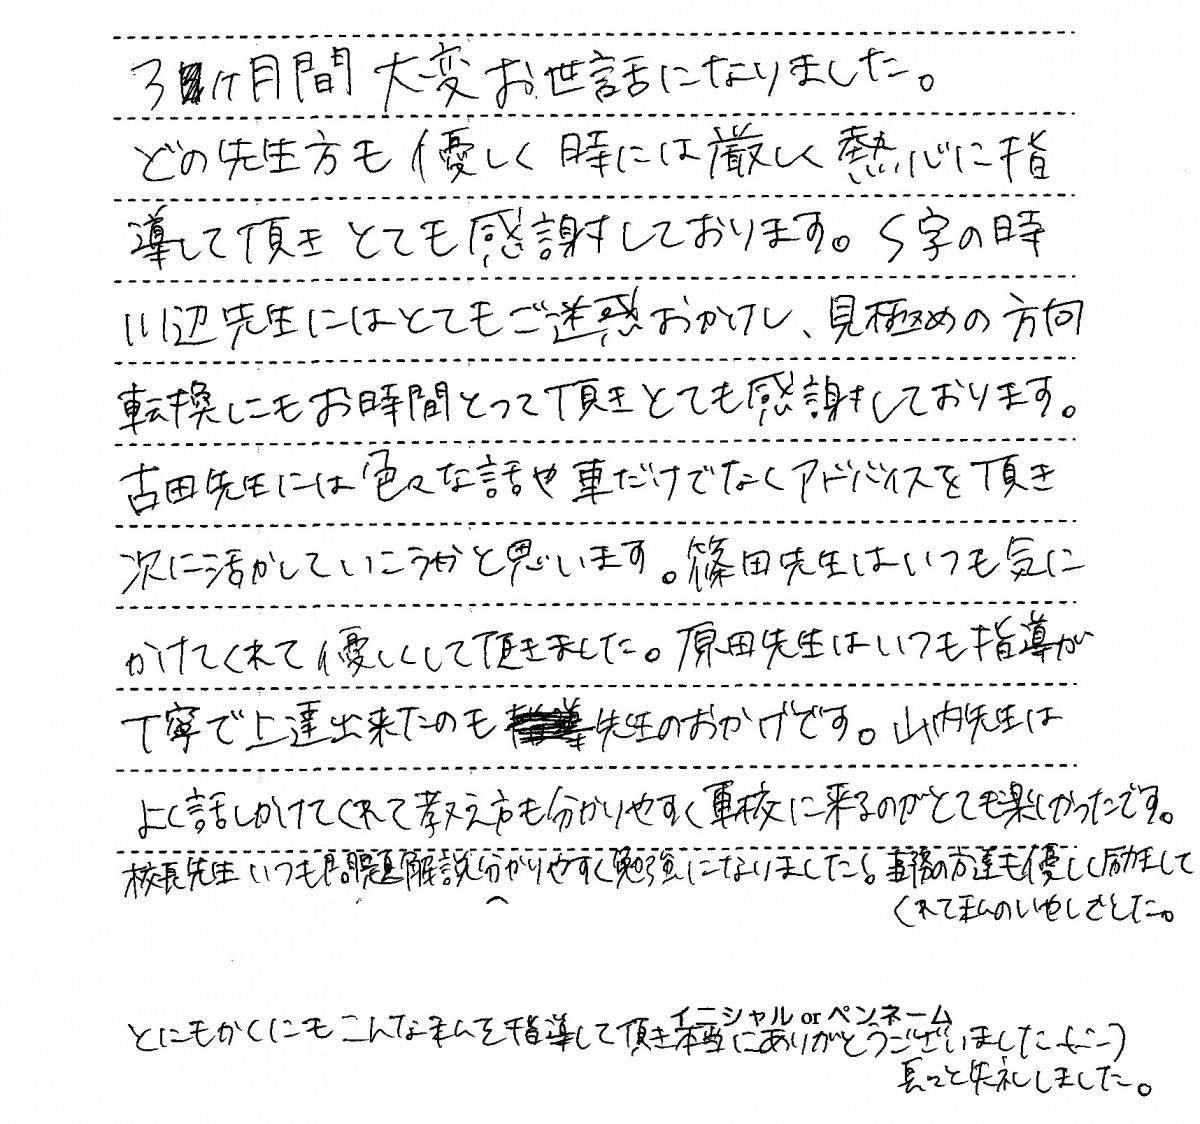 3ヶ月間 大変お世話になりました。
どの先生方も優しく時には厳しく熱心に指
導して頂きとても感謝しております。S字の時
川辺先生にはとてもご迷惑おかけし、見極めの方向
転換にもお時間とって頂きとても感謝しております。
古田先生には色々な話や車だけでなくアドバイスを頂き
次に活かしていこうかと思います。篠田先生はいつも気に
かけてくれて優しくして頂きました。原田先生はいつも指導が
丁寧で上達出来たのも先生のおかげです。山内先生は
よく話しかけてくれて教え方も分かりやすく軍校に来るのがとても楽しかったです。
校長先生いつも問題解説分かりやすく勉強になりました。事務の方達も優しく励まして
くれて私のいやしでした。
イニシャル or ペンネーム
とにもかくにもこんな私を指導して頂き本当にありがとうございました
長々と失礼しました。